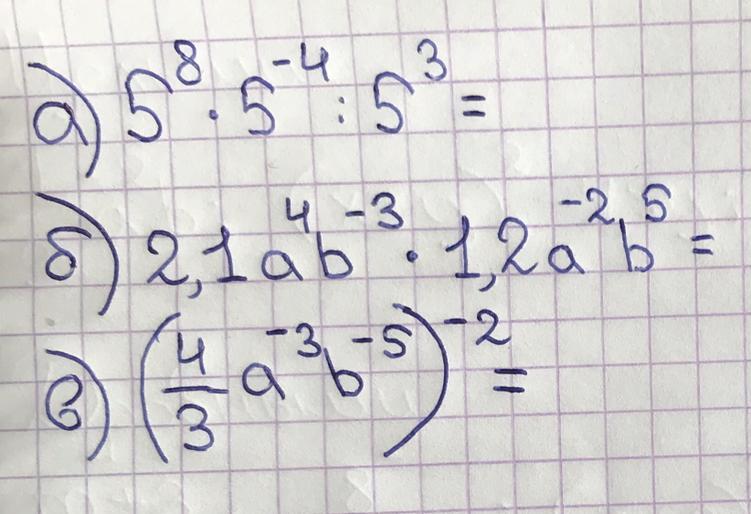 а) 5⁸ · 5⁻⁴ : 5³ =
б) 2,1a⁴b⁻³ · 1,2a⁻²b⁵ =
в) (4/3 a⁻³b⁻⁵)⁻² =